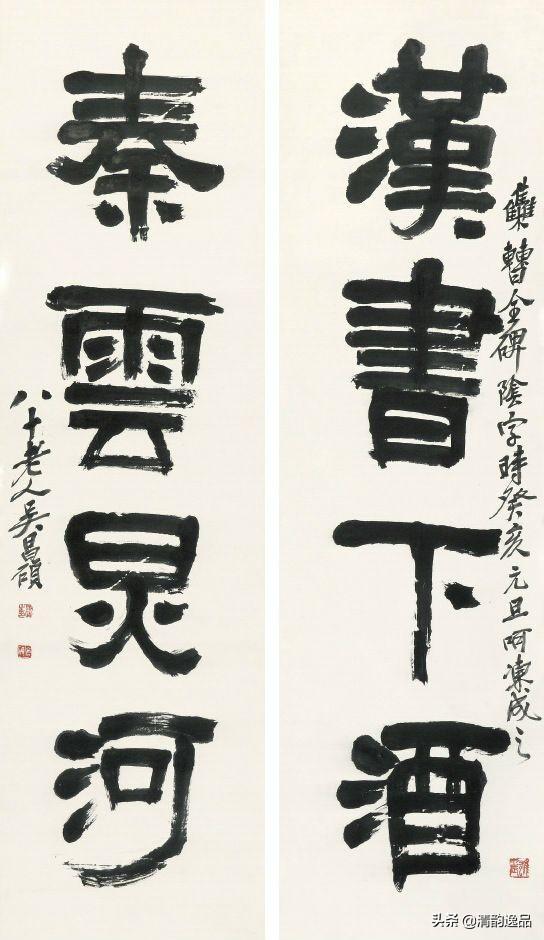 集曹全碑陰字時癸亥元旦呵凍成之
漢書下酒
秦雲炅河
八十老人吳昌碩
头条 @清韵逸品